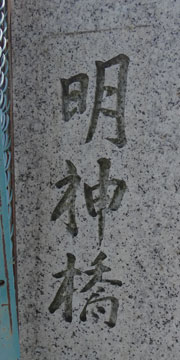 明神橋